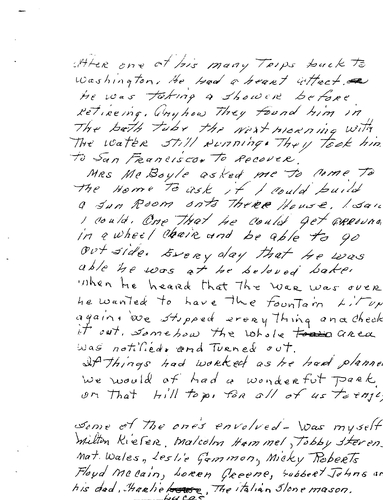 After one of his many Trips back to
Washington, He had a heart effect.
he was Taking a shower before
retireing. Anyhow They found him in
The bath Tube The next morning with
The water still running. They Took him
to San Francisco To recover.
Mrs McBoyle asked me To come To
the Home To ask if I could build
a Sun Room onto There House. I said
I could. One That he could get arround
in a wheel chair and be able to go
out side. Every day that he was
able he was at he beloved lake.
when he heard that The war was over
he wanted to have the fountain Lit up
again. We stopped everything and check
it out. Somehow the whole area
was notified and Turned out.
If things had worked as he had planned
we would of had a wonderful park,
on That hill top. for all of us to enjoy
Some of the one's envolved - was myself
Milton Kiefer, Malcolm Hammel, Tobby Steven
Nat. Wales, Leslie Gammon, Micky Roberts
Floyd McCain, Loren Greene, Johns or
his dad. Charlie The italian Stone mason.
Lucas